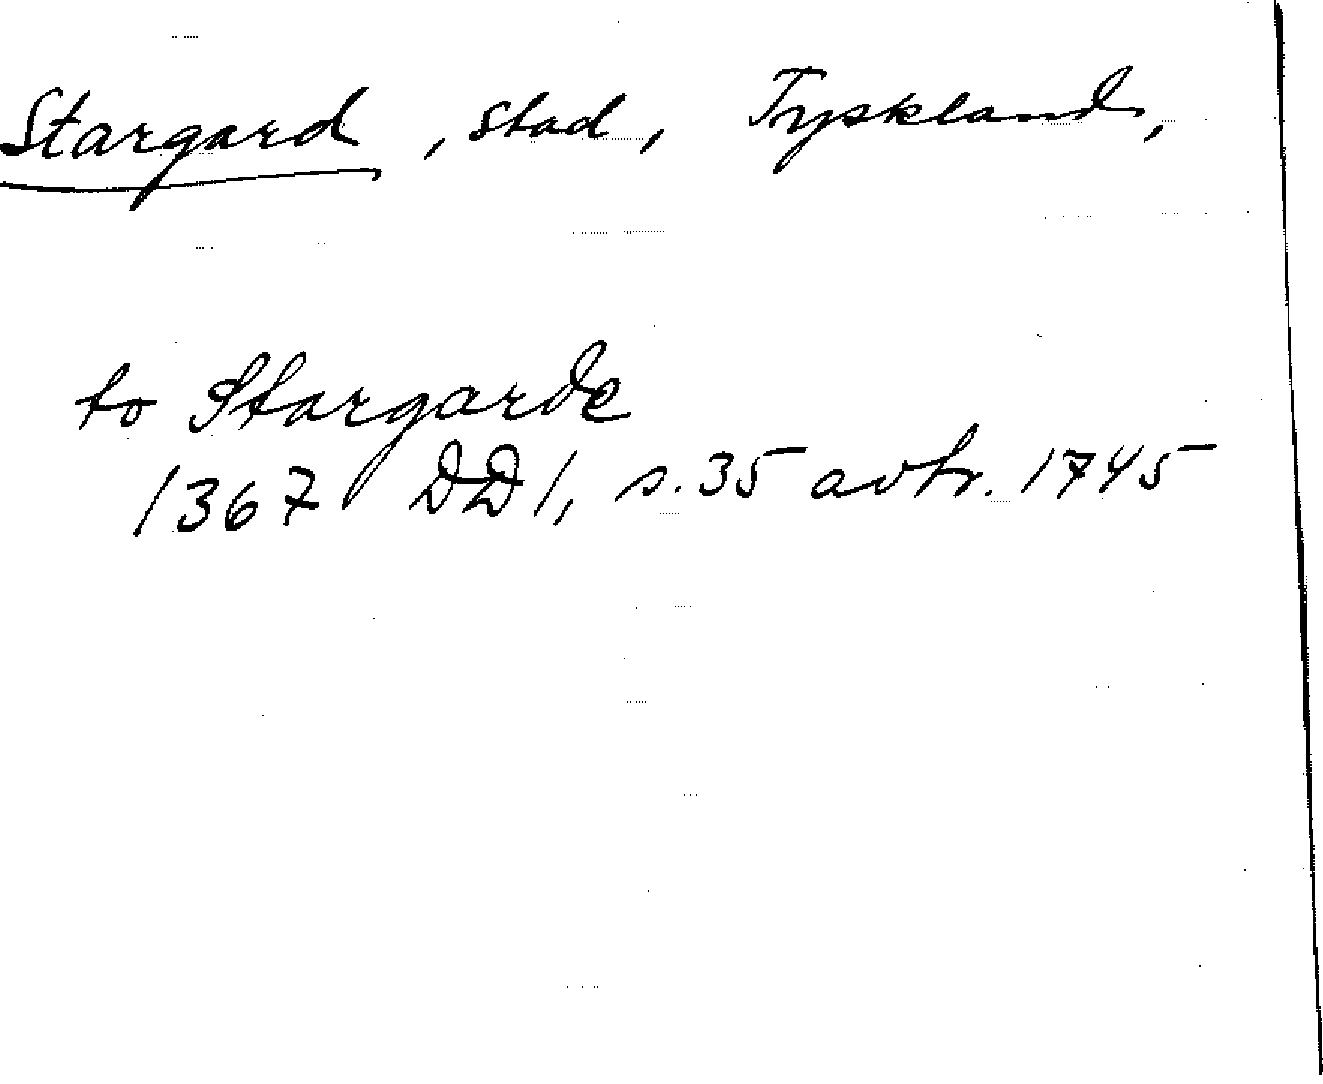 Stargard, stad, Tyskland,
to Stargarde
1367 DD1, s.35 avtr. 1745